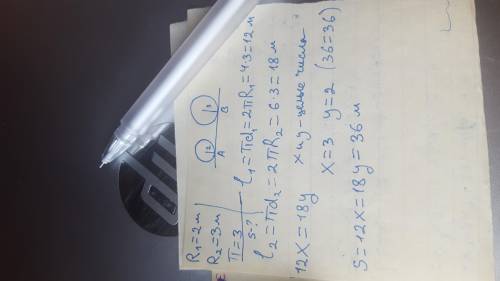 R₁=2м
R₂=3м
π=3
S-?
R₂ R₁
A B
l₁=πd₁=2πR₁=4·3=12м
l₂=πd₂=2πR₂=6·3=18м
12x=18y x и y-целые числа
x=3 y=2 (36=36)
S=12x=18y=36 м